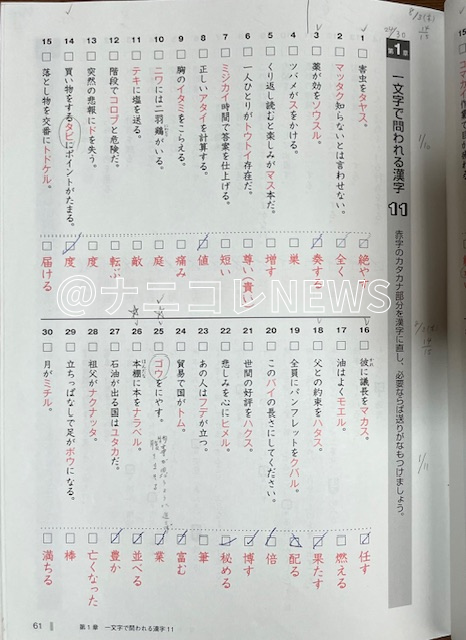 第1章 一文字で問われる漢字 11
赤字のカタカナ部分を漢字に直し、必要ならば送りがなもつけましょう。
1 害虫をタヤス。 絶やす
2 マッタク知らないとは言わせない。 全く
3 薬が効をソウスル。 奏する
4 ツバメがスをかける。 巣
5 くり返し読むと楽しみがマス本だ。 増す
6 一人ひとりがトウトイ存在だ。 尊い 貴い
7 ミジカイ時間で答案を仕上げる。 短い
8 正しいアタイを計算する。 値
9 胸のイタミをこらえる。 痛み
10 ニワには二羽鶏がいる。 庭
11 テキに塩を送る。 敵
12 階段でコロブと危険だ。 転ぶ
13 突然の悲報にドを失う。 度
14 買い物をするタビにポイントがたまる。 度
15 落とし物を交番にトドケル。 届ける
16 彼に議長をマカス。 任す
17 油はよくモエル。 燃える
18 父との約束をハタス。 果たす
19 全員にパンフレットをクバル。 配る
20 このバイの長さにしてください。 倍
21 世間の好評をハクス。 博す
22 悲しみを心にヒメル。 秘める
23 あの人はフデが立つ。 筆
24 貿易で国がトム。 富む
25 ゴウをにやす。 業
26 本棚に本をナラベル。 並べる
27 石油が出る国はユタカだ。 豊か
28 祖父がナクナッタ。 亡くなった
29 立ちっぱなしで足がボウになる。 棒
30 月がミチル。 満ちる
61 第1章 一文字で問われる漢字 11
@ナニコレNEWS